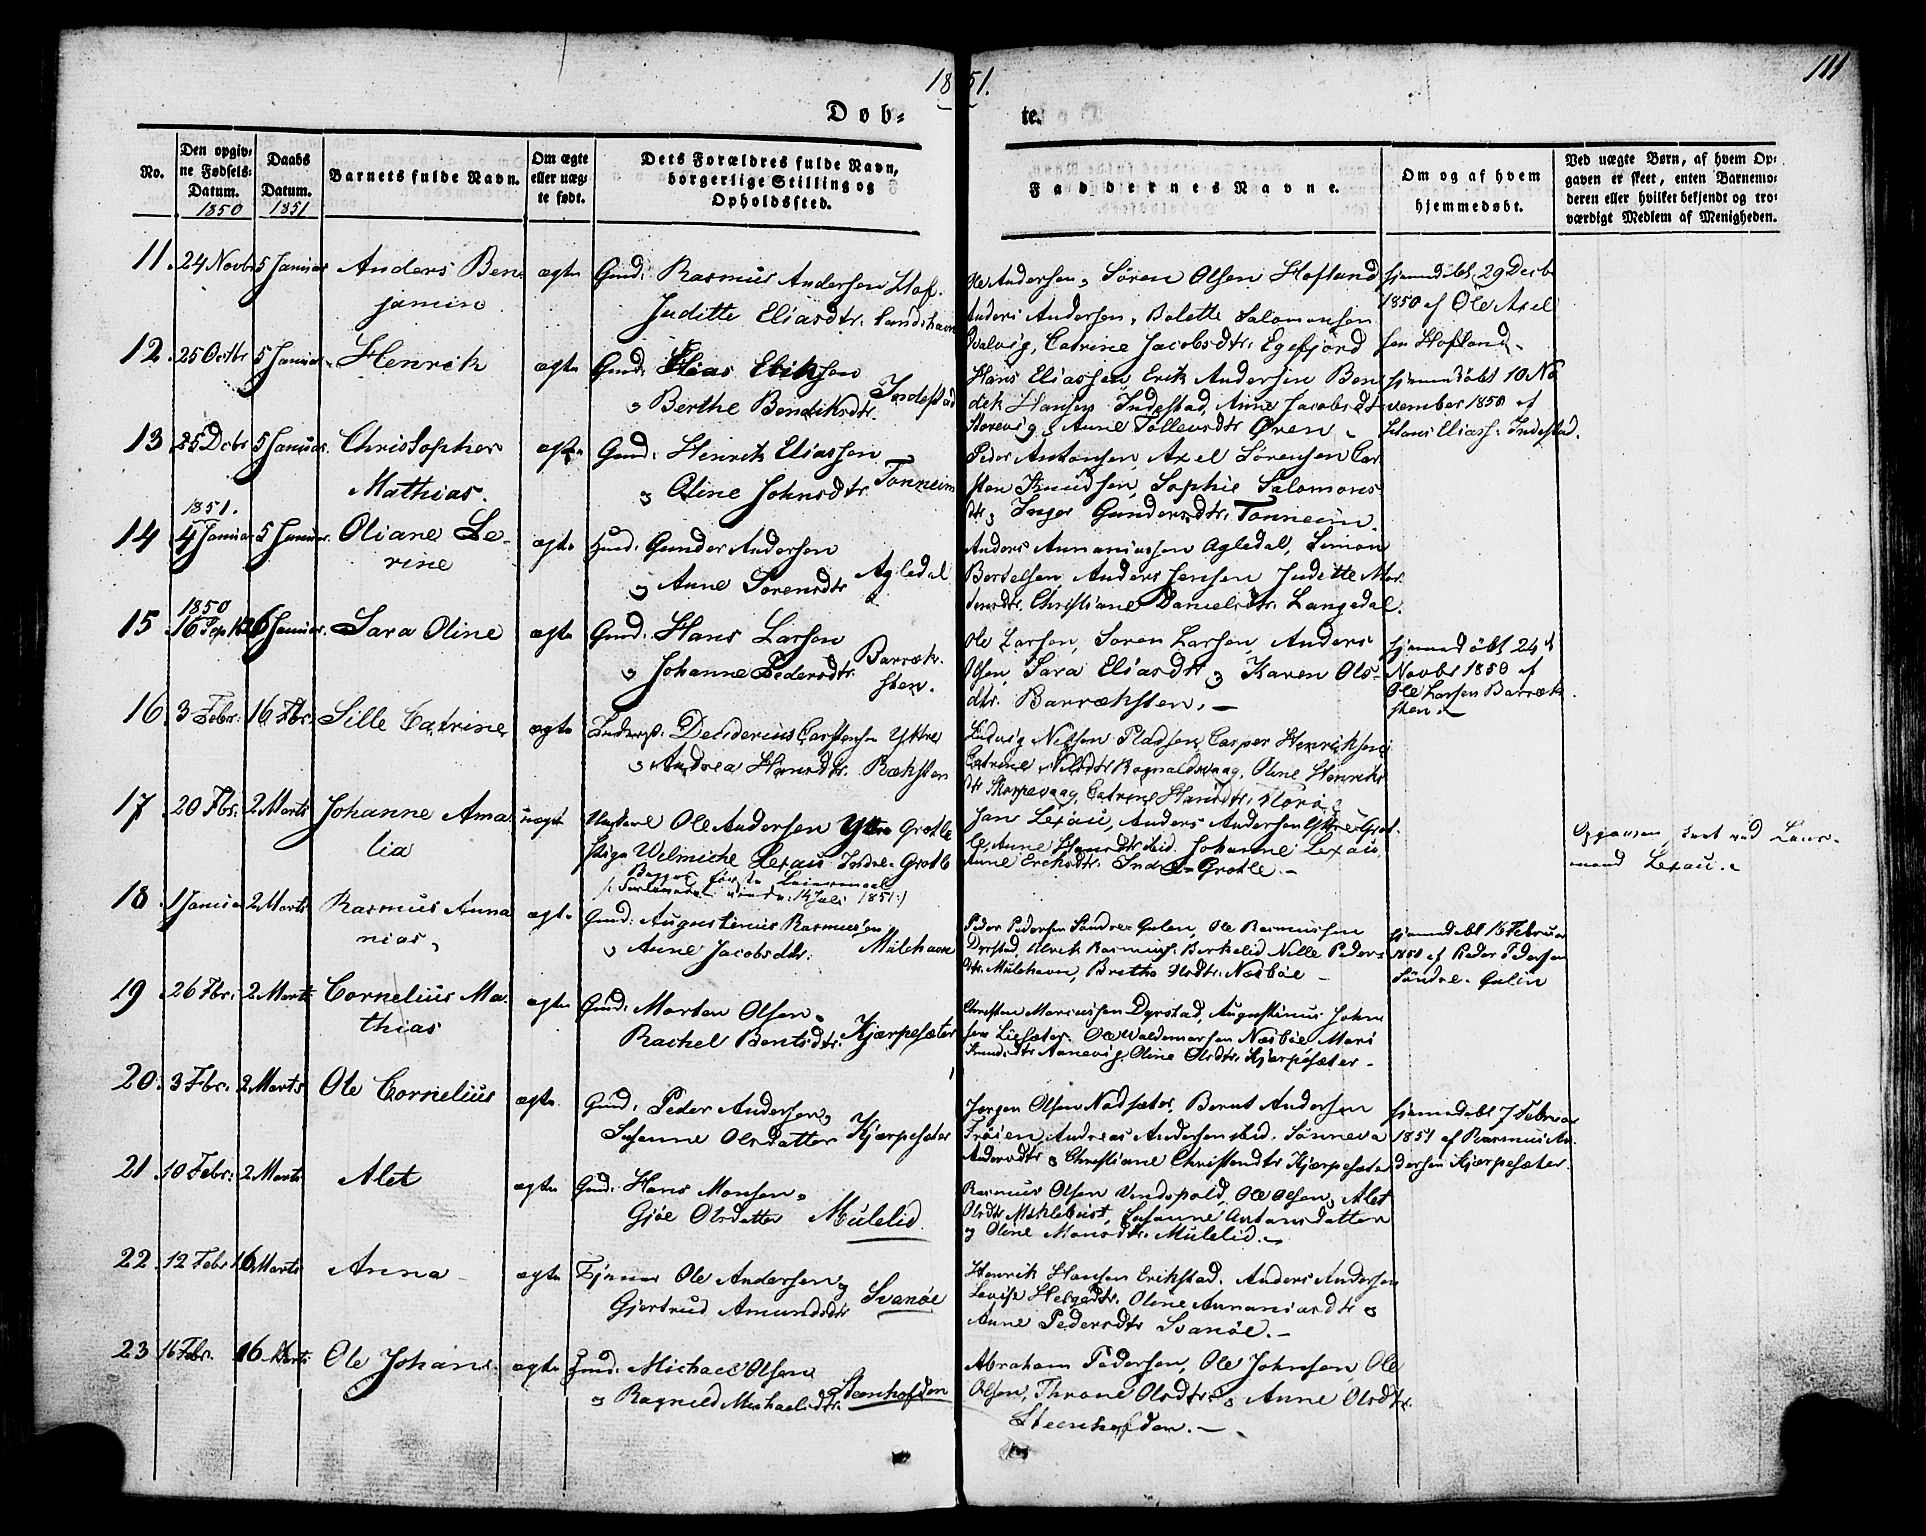 1851.
111
Døb-
te.
No.
Den opgiv-
ne Fødsels-
Datum.
1850
Daabs
Datum.
1851
Barnets fulde Navn.
Om ægte
eller uæg-
te født.
Dets Forældres fulde Navn,
borgerlige Stilling og
Opholdssted.
Faddernes Navne.
Om og af hvem
hjemmedøbt.
Ved uægte Børn, af hvem Op-
gaven er skeet, enten Barnemo-
deren eller hvilket bekjendt og tro-
værdigt Medlem af Menigheden.
11. 24 Novbr 5 Januar Anders Ben
jamin
ægte
Gmd: Rasmus Andersen Hof.
Juditte Eliasdtr. Sandshavn
Ole Andersen, Sören Olsen Hofland
Anders Andersen, Bolette Salomonsen
Catrine Jacobsdtr. Egefjord
hjemmedøbt 29 Decbr
1850 af Ole Axel
sen Hofland.
12. 25 Octbr 5 Januar. Henrik
ægte
Gmd: Elias Eriksen
Berthe Bendiksdtr. Indestad
Hans Eliassen, Erik Andersen Ben
dik Hansen Indestad, Anne Jacobsdt
Storevig, Anne Tollevsdtr Øren
hjemmedøbt 10 No
vember 1850 af
Hans Eliass: Indestad.
13. 25 Decbr 5 Januar. Christopher
Mathias.
ægte
Gmd: Henrik Eliassen
og Oline Johnsdtr. Tonneim
Peder Antonsen, Axel Sörensen Car
sten Knudsen, Sophie Salomons
dtr, Inger Gundersdtr. Tonneim.
1851.
14. 4 Januar 5 Januar. Oliane Se-
rine
ægte
Gmd: Gunder Andersen
og Anne Sorensdtr Agledal
Anders Annaniassen Agledal, Simon
Bertelsen, Anders Jensen Juditte Mor
tensdtr. Christiane Danielsdtr. Langedal.
1850
15. 16 Septbr 26 Januar. Sara Oline
ægte
Gmd: Hans Larsen
og Johanne Pedersdtr. Barræk-
sten.
Ole Larsen, Soren Larsen, Anders
Olsen, Sara Eliasdtr og Karen Ols-
dtr. Barræksten.
hjemmedøbt 24de
Novbr 1850 af
Ole Larsen Barræk
sten.
16. 3 Febr: 16 Fbr. Sille Catrine
ægte
Desiderius Carstensen Yttre
og Andrea Hansdtr. Ræksten
Ludvig Nilsen Pladsen, Casper Henriksen
Catrine Nilsdtr Rognaldsvaag, Oline Henriks
dtr Skorpevaag, Catrine Hansdtr. Florø
17. 20 Fbr. 2 Marts Johanne Ama
lia
uægte
Ungkarl Ole Andersen Yttre Grotle
Pige Velmiche Lexau Indre-Grotle
Begges første Leiermaal
14 Juli 1851.)
Jan Lexau, Anders Andersen Yttre-Grot-
le, Anne Hansdtr ibid. Johanne Lexau,
Anne Eriksdtr. Indre-Grotle.
Opgaven skeet ved Lens-
mand Lexau.
18. 1 Januar 2 Marts Rasmus Anna
nias,
ægte
Gmd: Augustinus Rasmusen
og Anne Jacobsdtr. Mulehavn
Peder Pedersen Søndre-Gulen, Ole Rasmussen
Dyrstad, Ulrik Rasmuss. Berkelid Nille Peders
dtr. Mulehavn, Brethe Olsdtr. Næsbøe
hjemmedøbt 16 Februar
1851 af Peder Pedersen
Søndre-Gulen
19. 26 Fbr. 2 Marts Cornelius Ma
thias
ægte
Gmd: Morten Olsen
Rachel Bentsdtr. Kjærpesæter
Christen Marcussen Dyrstad, Augustinus John
sen Liesæter. Ole Waldemarsen Næsbøe Mari
Knudsdtr Aanevig, Oline Olsdtr. Kjærpesæter
20. 3 Fbr. 2 Marts Ole Cornelius
ægte
Gmd: Peder Andersen
Susanne Olsdatter Kjærpesæter
Jørgen Olsen Nodsæter, Bernt Andersen
Frøien, Andreas Andersen ibid. Sønneva
Andersdtr og Christiane Christensdtr Kjærpesæter
hjemmedøbt 7 Februar
1851 af Rasmus An-
dersen Kjærpesæter.
21. 10 Febr: 2 Marts Alet
ægte
Gmd: Hans Monsen
Gjøe Olsdatter Mulelid
Rasmus Olsen Vindspold, Ole Olsen, Alet
Olsdtr Myklebust, Susanne Antonsdatter
og Oline Monsdtr. Mulelid.
22. 12 Febr 16 Marts Anna
ægte
Tjener Ole Andersen og
Gjertrud Amundsdtr Svanøe
Henrik Hansen Erikstad, Anders Andersen
Lovise Helgedtr. Oline Annaniasdtr og
Anne Pedersdtr Svanøe.
23 16 Febr. 16 Marts Ole Johan
ægte
Gmd: Michael Olsen
og Ragnild Michaelsdtr. Steenhofden
Abraham Pedersen, Ole Johnsen, Ole
Olsen, Throne Olsdtr. og Anne Olsdtr.
Steenhofden.